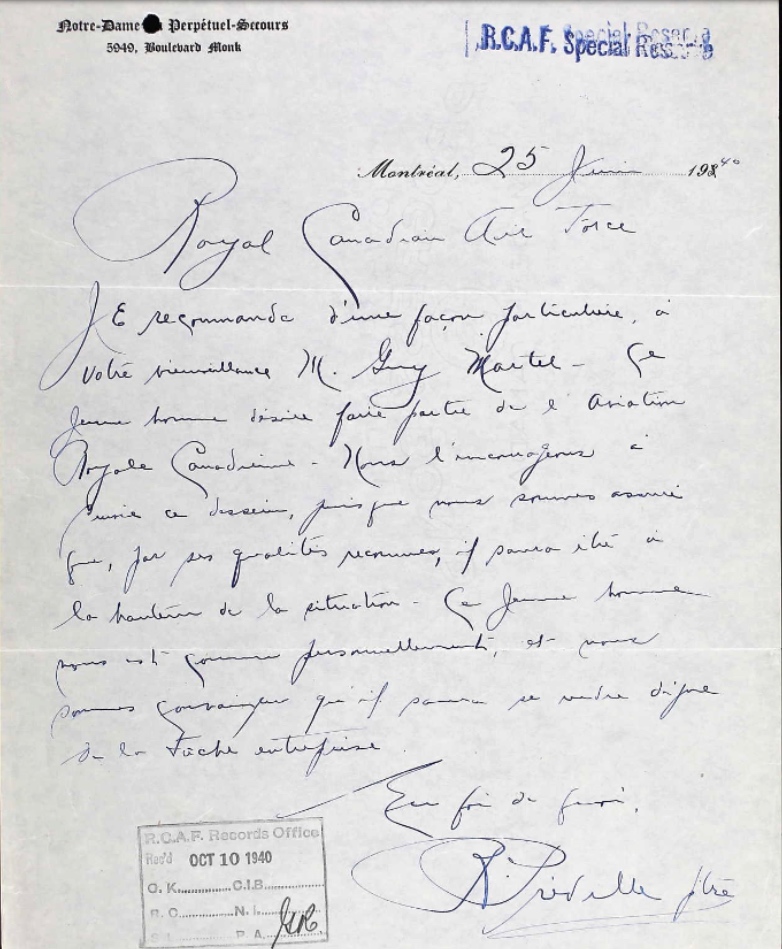 Notre-Dame Perpétuel-Secours
5949, Boulevard Monk
R.C.A.F. Special Reserve
Montréal, 25 Juin 1940
Royal Canadian Air Force
JE recommande d'une façon particulière, à
votre bienveillance M. Guy Martel - Ce
jeune homme désire faire partie de l'Aviation
Royale Canadienne - Nous l'encourageons à
suivre ce dessein, puisque nous sommes assuré
que, par ses qualités reconnues, il saura être à
la hauteur de la situation - Ce jeune homme
nous est connu personnellement, et nous
sommes convaincu qu'il saura se rendre digne
de la tâche entreprise.
En foi de quoi,
R. Préville ptre
R.C.A.F. Records Office
Rec'd OCT 10 1940
O. K. C.I.B.
R. C. N. I.
P. A.